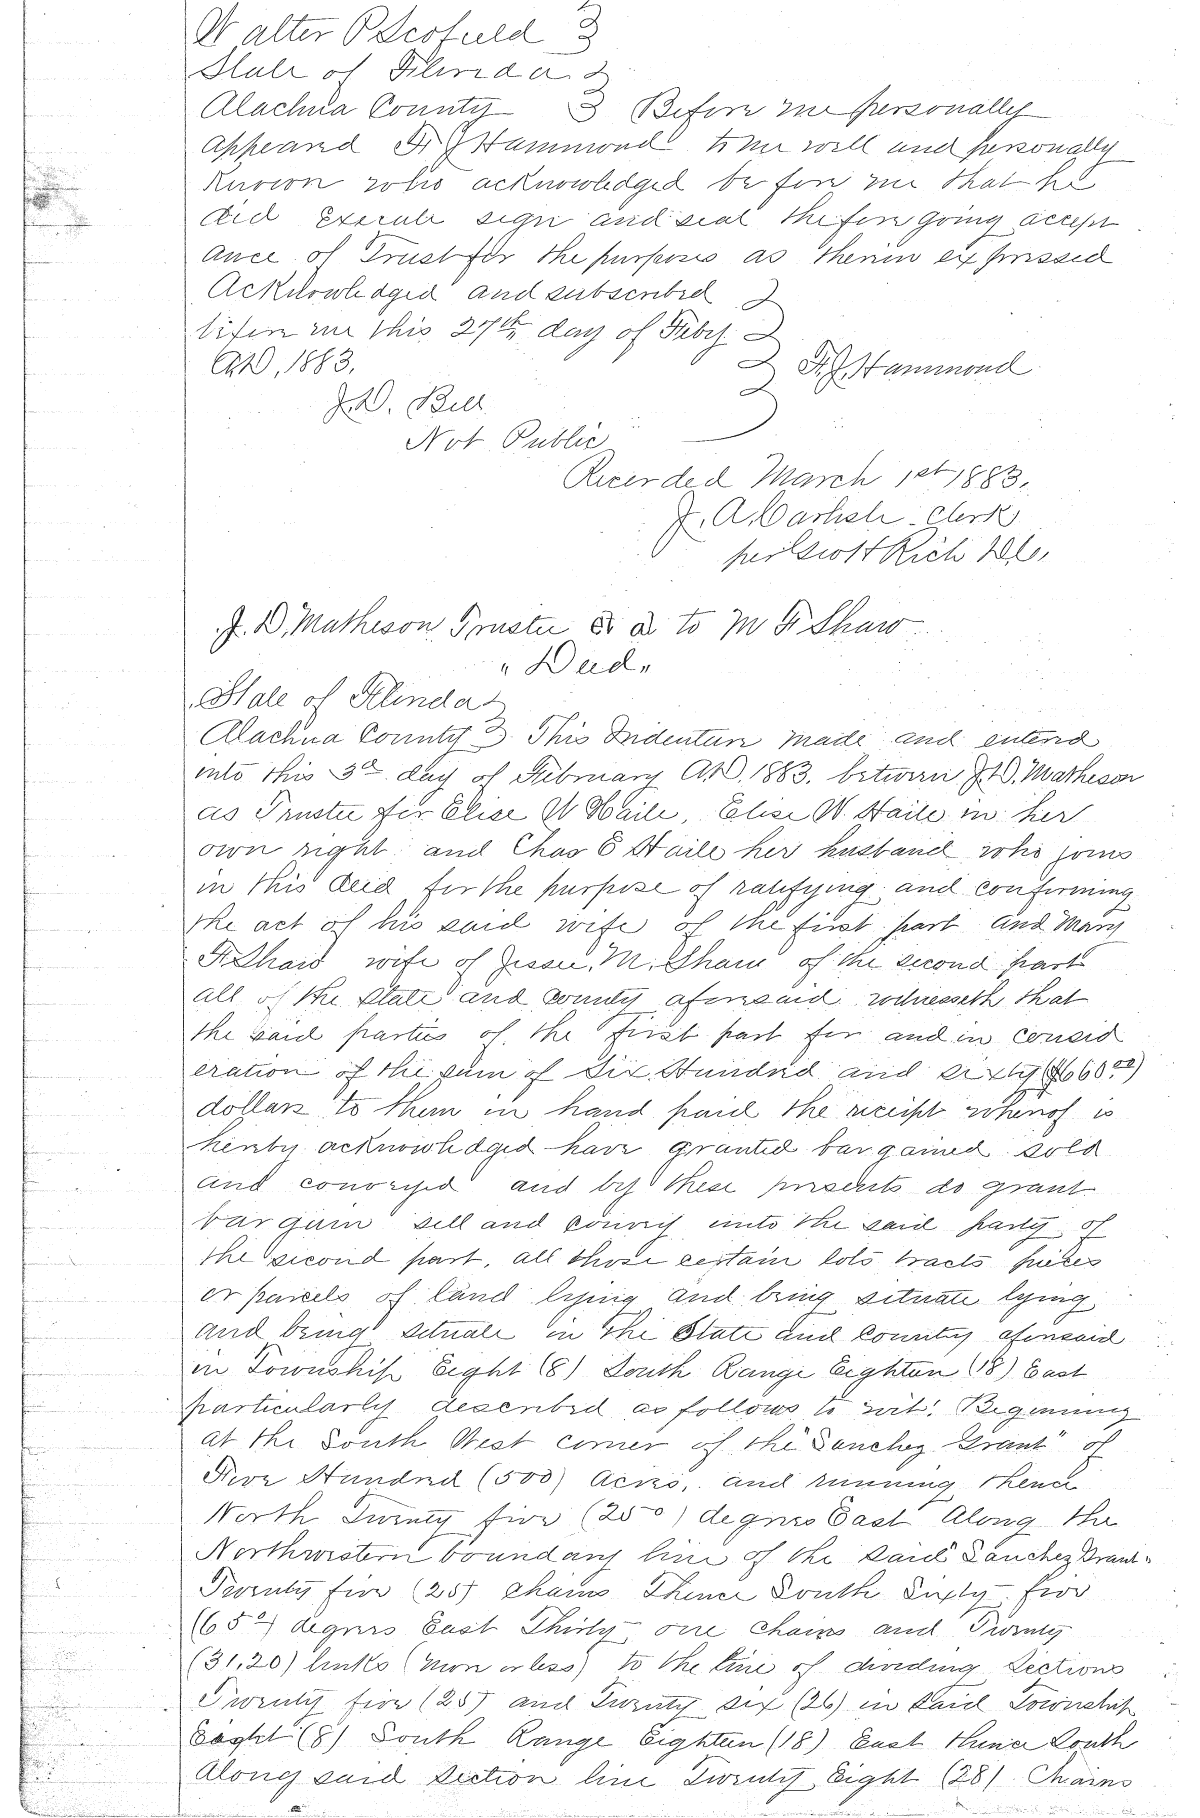 Walter P Scofield
State of Florida
Alachua County Before me personally
appeared F. J Hammond to me well and personally
known who acknowledged before me that he
did Execute sign and seal the fore going accept
ance of Trust for the purposes as therein expressed
Acknowledged and subscribed
before me this 27th day of Feby
A.D, 1883.
F. J. Hammond
J. D. Bell
Not Public
Recorded March 1st 1883.
J. A. Carlisle Clerk
per Scott Rich D.C.
J. D. Matheson Trustee & al to M F Shaw
"Deed"
State of Florida
Alachua County This Indenture made and entered
into this 3d day of February A.D. 1883. between J. D. Matheson
as Trustee for Elise W Haile, Elise W. Haile in her
own right and Chas E Haile her husband who joins
in this deed for the purpose of ratifying and confirming
the act of his said wife of the first part and Mary
F. Shaw wife of Jessee. M. Shaw of the second part
all of the State and County aforesaid witnesseth that
the said parties of the first part for and in consid
eration of the sum of Six Hundred and sixty ($660.00)
dollars to them in hand paid the receipt whereof is
hereby acknowledged have granted bargained sold
and conveyed and by these presents do grant
bargain sell and convey unto the said party of
the second part, all those certain lots tracts pieces
or parcels of land lying and being situate lying
and being situate in the State and County aforesaid
in Township Eight (8) South Range Eighteen (18) East
particularly described as follows to wit: Beginning
at the South West corner of the "Sanchez Grant" of
Five Hundred (500) Acres, and running thence
North Twenty five (25°) degrees East Along the
Northwestern boundary line of the said "Sanchez Grant"
Twenty five (25) chains Thence South Sixty five
(65°) degrees East Thirty one chains and Twenty
(31.20) links (more or less) to the line of dividing Sections
Twenty five (25) and Twenty six (26) in said Township
Eight (8) South Range Eighteen (18) East thence South
Along said Section line Twenty Eight (28) Chains